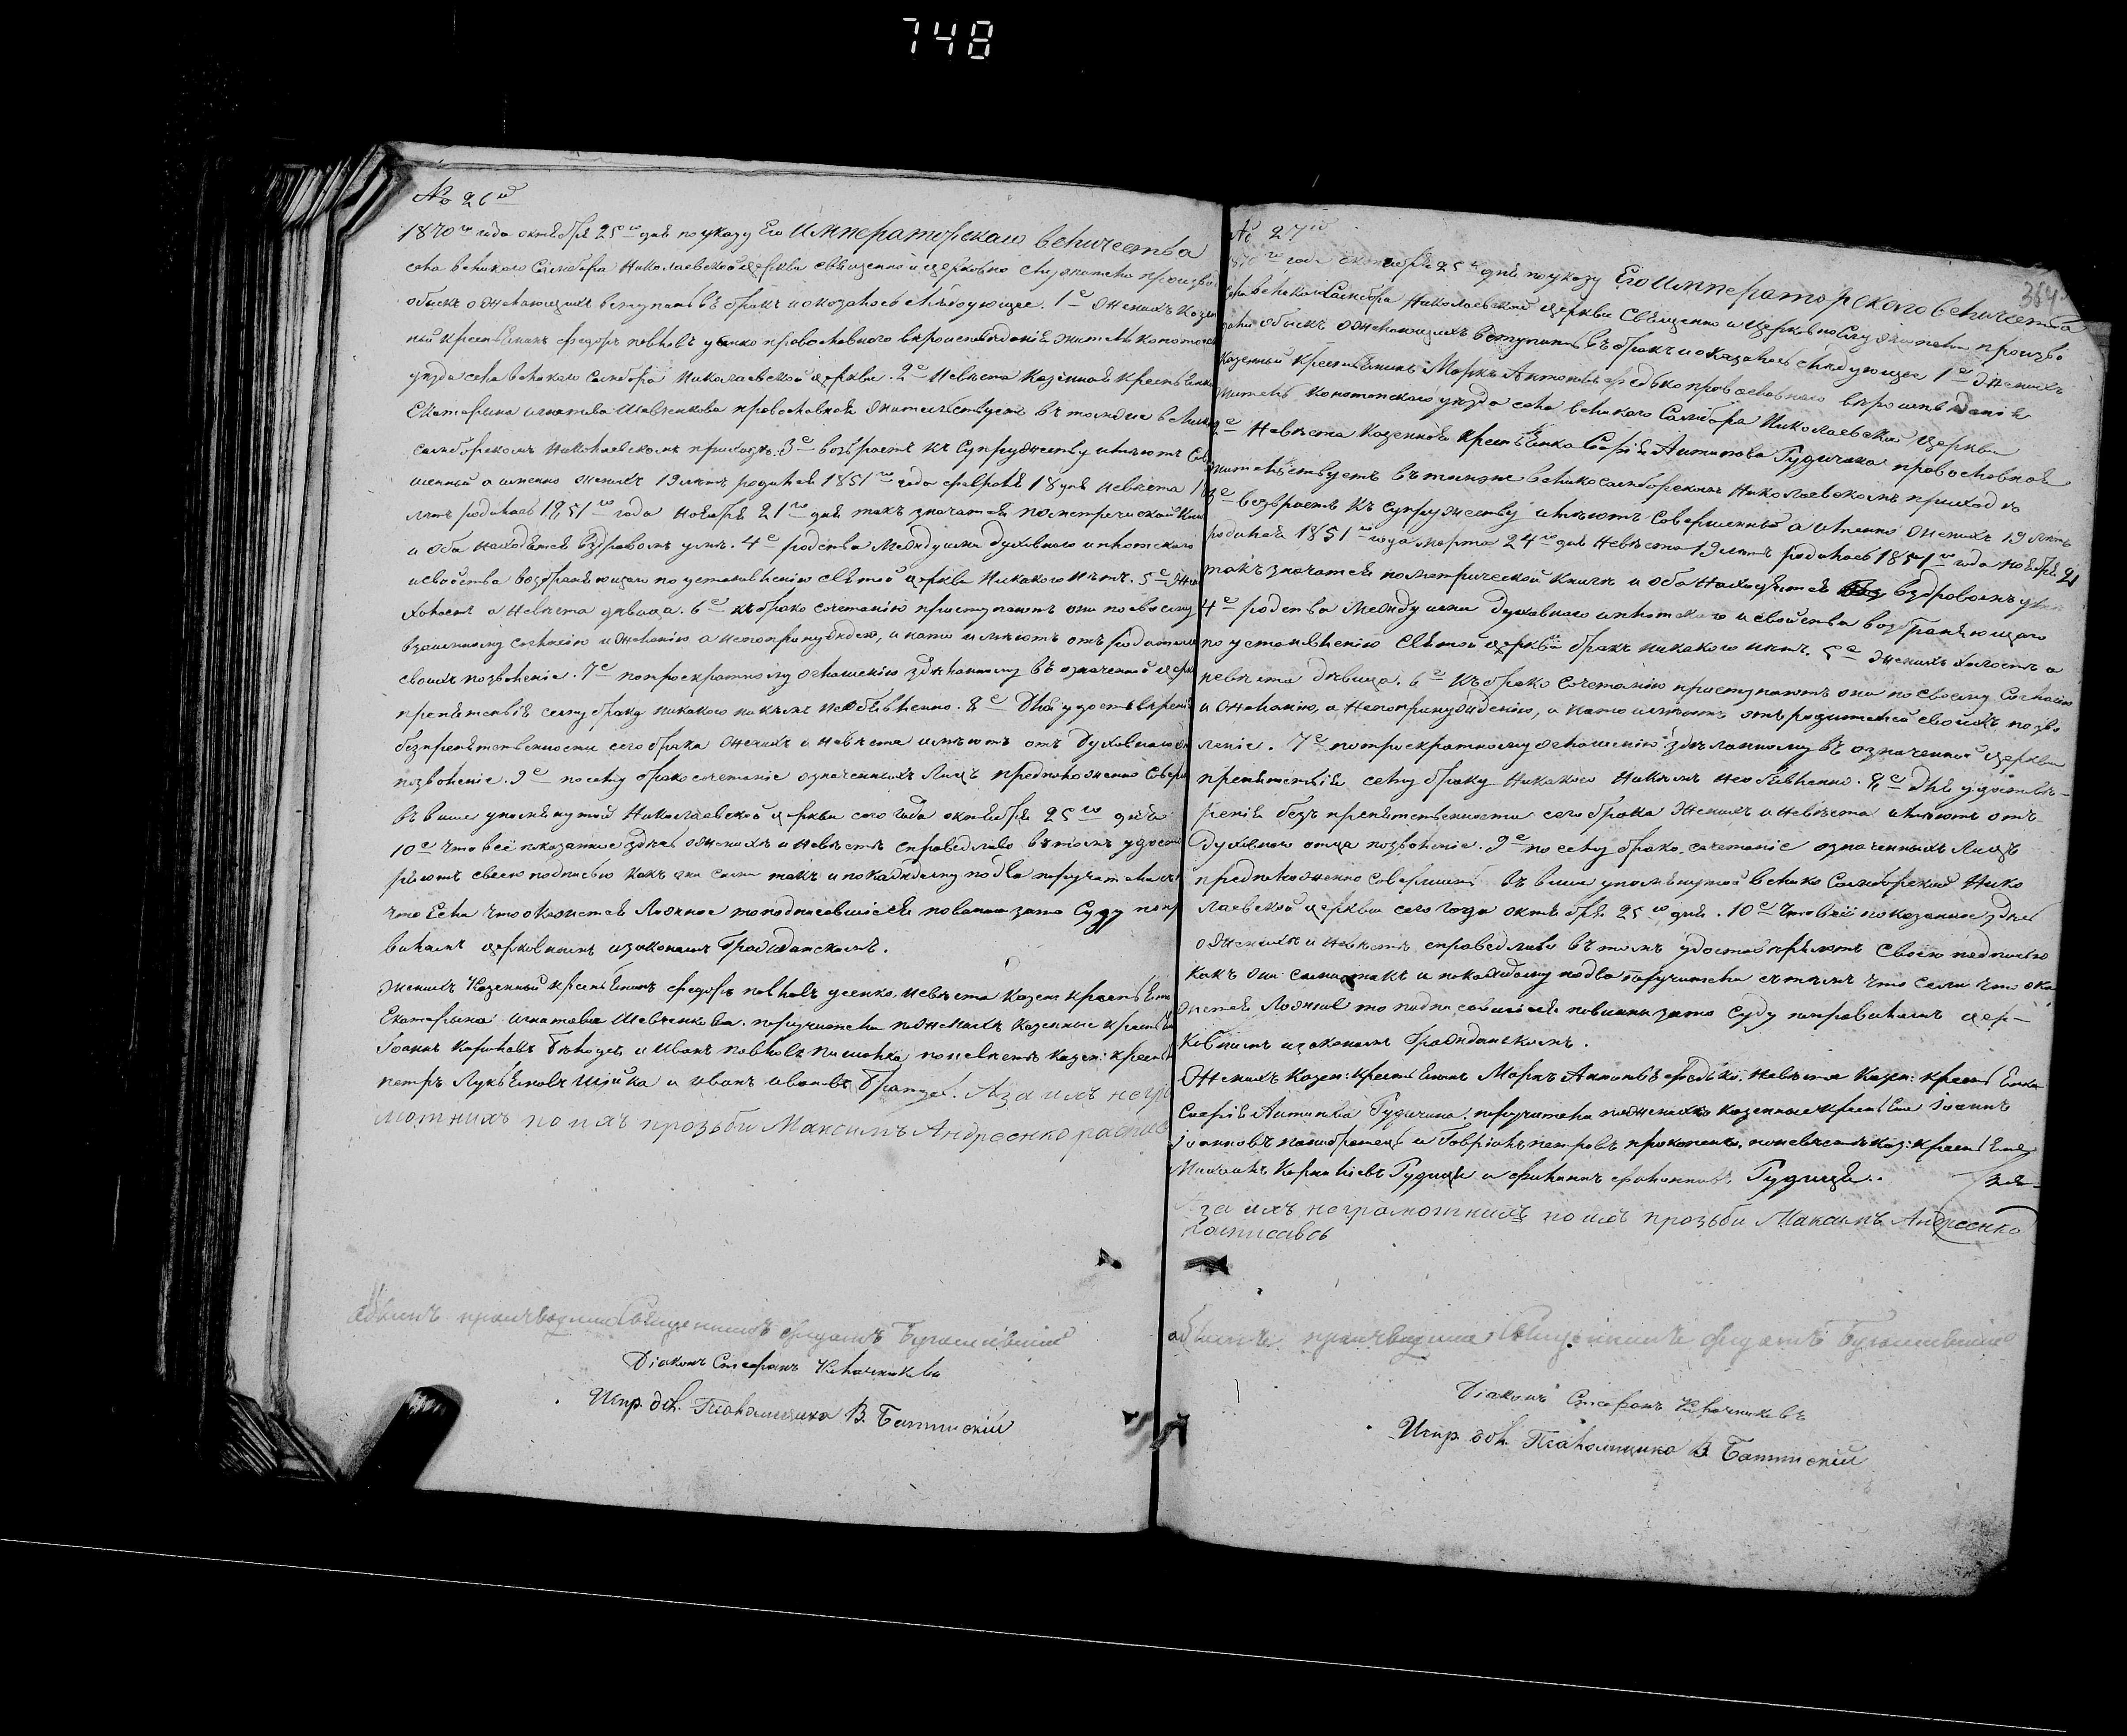 748
№ 26й
1870го года октября 25го дня по указу Его Императорскаго величества
села великаго Самбора Николаевской церкви священно и церковно служители произво
обыскъ о желающихъ вступить въ бракъ и оказалось следующее. 1е Женихъ Казен
ный крестьянинъ федоръ павловъ усенко православнаго вероисповеданія житель конотопс
уезда села великаго самбора Николаевской церкви. 2е Невеста Казенная крестьянка
Екатерина игнатова Шевченкова православная жительствуетъ въ томже велико
самборскомъ Николаевскомъ приходе. 3е возрастъ къ Супружеству имеютъ Сов
шенный а именно женихъ 19 летъ родился 1851го года февраля 18 дня невеста 1
летъ родилась 1851го года ноября 21го дня такъ значатся по метрической Кни
и оба находятся въ здравомъ уме. 4е родства между ими духовнаго и плотскаго
и свойства возбраняющаго по установленію святой церкви никакого нетъ. 5е Же
холостъ а Невеста девица. 6е къ бракосочетанію приступаютъ они по своему
взаимному согласію и желанію а непопринужденію, и нато имеютъ отъ родителей
своихъ позволеніе. 7е по троекратному оглашенію зделанному въ означенной церк
препятствія сему браку никакого никемъ необъявленно. 8е Для удостоверені
безпрепятственности сего брака женихъ и невеста имеютъ отъ Духовнаго
позволеніе. 9е посему бракосочетаніе означенныхъ Лицъ предположенно Совер
въ выше упомянутой Николаевской церкви сего года октября 25го дня
10е Что все показанное здесь о женихе и невесте справедливо въ томъ удосто
ряютъ своею подписью какъ они сами такъ и покаждому по два поручителя
что Если что окажется Ложное то подписавшіеся повинни зато Суду попр
виламъ церковнымъ и законамъ Гражданскимъ.
Женихъ Казенный крестьянинъ федоръ павловъ усенко, невеста Казен крестьян
Екатерина игнатова Шевченкова. поручители по женихе Казенные крестья
Іоаннъ Карповъ и Иванъ павловъ поневесте казен: крестья
петръ Лукьяновъ Шійка и иванъ ивановъ Братусь. А за ихъ негра
мотнихъ по ихъ прозьби Максимъ Андреенко распис
обыскъ производилъ Священникъ
Діаконъ Стефанъ Ключниковъ
Испр. дол. Псаломщика В. Батинскій
364
№ 27й
1870го года октября 25го дня по указу Его Императорского величества
села великаго Самбора Николаевской церкви Священно и церковно Служители произво
дили обыскъ о желающихъ вступить въ бракъ и оказалось следующее 1е Женихъ
Казенный крестьянинъ Маркъ Антоновъ федько православнаго вероисповеданія
житель конотопскаго уезда села великаго Самбора Николаевской церкви
2е Невеста Казенная крестьянка Софія Антипова Гудимова православная
жительствуетъ въ томже великосамборскомъ Николаевскомъ приходе
3е возврастъ къ супружеству имеютъ Совершенный а именно женихъ 19 летъ
родился 1851го года марта 24го дня Невеста 19 летъ родилась 1851го года ноября 21
такъ значатся по метрической книге и оба находятся въ здравомъ уме
4е родства между ими духовнаго и плотскаго и свойства возбраняющаго
по установленію святой церкви бракъ никакого нетъ. 5е женихъ холостъ а
невеста девица. 6е къ бракосочетанію приступаютъ они по своему Согласію
и желанію, а непопринужденію, и нато имеютъ отъ родителей своихъ позво
леніе. 7е по троекратному оглашенію зделанному въ означенной церкви
препятствія сему браку никакого никемъ необъявленно. 8е Для удостове-
ренія безъ препятственности сего брака женихъ и невеста имеютъ отъ
Духовнаго отца позволеніе. 9е посему брако-сочетаніе означенныхъ Лицъ
предположенно совершить въ выше упомянутой велико Самборской Нико
лаевской церкви сего года октября 25го дня. 10е Что все показанное здесь
о женихе и невесте справедливо въ томъ удостоверяютъ своею подписью
какъ они сами такъ и покаждому по два поручителя съ темъ что если что ока
жется Ложное то подписавшіеся повинни зато суду поправиламъ цер-
ковнымъ и законамъ Гражданскимъ.
Женихъ казен: крестьянинъ Маркъ Антоновъ федько, невеста Казен: крестьянка
Софія Антипова Гудимова. поручители по женихе казенные крестьяне іоаннъ
іоанновъ и Гавріилъ петровъ прокопенко, поневесте каз: крестьяне
Михаилъ Корниліевъ и филиппъ филипповъ
А за ихъ неграмотнихъ по ихъ прозьби Максимъ Андреенко
росписався
обыскъ производилъ Священникъ
Діаконъ Стефанъ Ключниковъ
Испр. дол. Псаломщика В. Батинскій